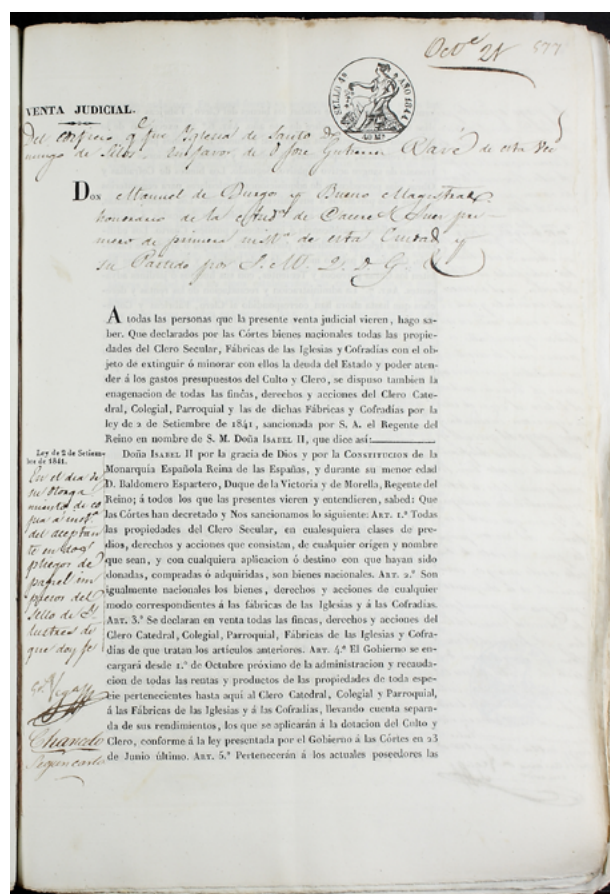 Oct.e 21 577
SELLO 4º AÑO 1844
40 Ms
VENTA JUDICIAL.
Del que Iglesia de Santo Do
mingo de Silos en favor de D. Jose Gutierrez de esta
DON Manuel de Burgos y Bueno Magistrado
honorario de la de Juez pri-
mero de primera de esta Ciudad y
su Partido por S. M. Q. D. G.
A todas las personas que la presente venta judicial vieren, hago sa-
ber. Que declarados por las Córtes bienes nacionales todas las propie-
dades del Clero Secular, Fábricas de las Iglesias y Cofradías con el ob-
jeto de extinguir ó minorar con ellos la deuda del Estado y poder aten-
der á los gastos presupuestos del Culto y Clero, se dispuso tambien la
enagenacion de todas las fincas, derechos y acciones del Clero Cate-
dral, Colegial, Parroquial y las de dichas Fábricas y Cofradías por la
ley de 2 de Setiembre de 1841, sancionada por S. A. el Regente del
Reino en nombre de S. M. Doña ISABEL II, que dice así:
Ley de 2 de Setiem-
bre de 1841.
Doña ISABEL II por la gracia de Dios y por la CONSTITUCION de la
Monarquía Española Reina de las Españas, y durante su menor edad
D. Baldomero Espartero, Duque de la Victoria y de Morella, Regente del
Reino; á todos los que las presentes vieren y entendieren, sabed: Que
las Córtes han decretado y Nos sancionamos lo siguiente: ART. 1.º Todas
las propiedades del Clero Secular, en cualesquiera clases de pre-
dios, derechos y acciones que consistan, de cualquier origen y nombre
que sean, y con cualquiera aplicacion ó destino con que hayan sido
donadas, compradas ó adquiridas, son bienes nacionales. ART. 2.º Son
igualmente nacionales los bienes, derechos y acciones de cualquier
modo correspondientes á las fábricas de las Iglesias y á las Cofradías.
ART. 3.º Se declaran en venta todas las fincas, derechos y acciones del
Clero Catedral, Colegial, Parroquial, Fábricas de las Iglesias y Cofra-
días de que tratan los artículos anteriores. ART. 4.º El Gobierno se en-
cargará desde 1.º de Octubre próximo de la administracion y recauda-
cion de todas las rentas y productos de las propiedades de toda espe-
cie pertenecientes hasta aquí al Clero Catedral, Colegial y Parroquial,
á las Fábricas de las Iglesias y á las Cofradías, llevando cuenta separa-
da de sus rendimientos, los que se aplicarán á la dotacion del Culto y
Clero, conforme á la ley presentada por el Gobierno á las Córtes en 23
de Junio último. ART. 5.º Pertenecerán á los actuales poseedores las
En el dia de
su otorga
miento di co
pia á inst.ª
del aceptan
te en dos
pliegos de
papel im
presos del
sello de
de
que doy fe